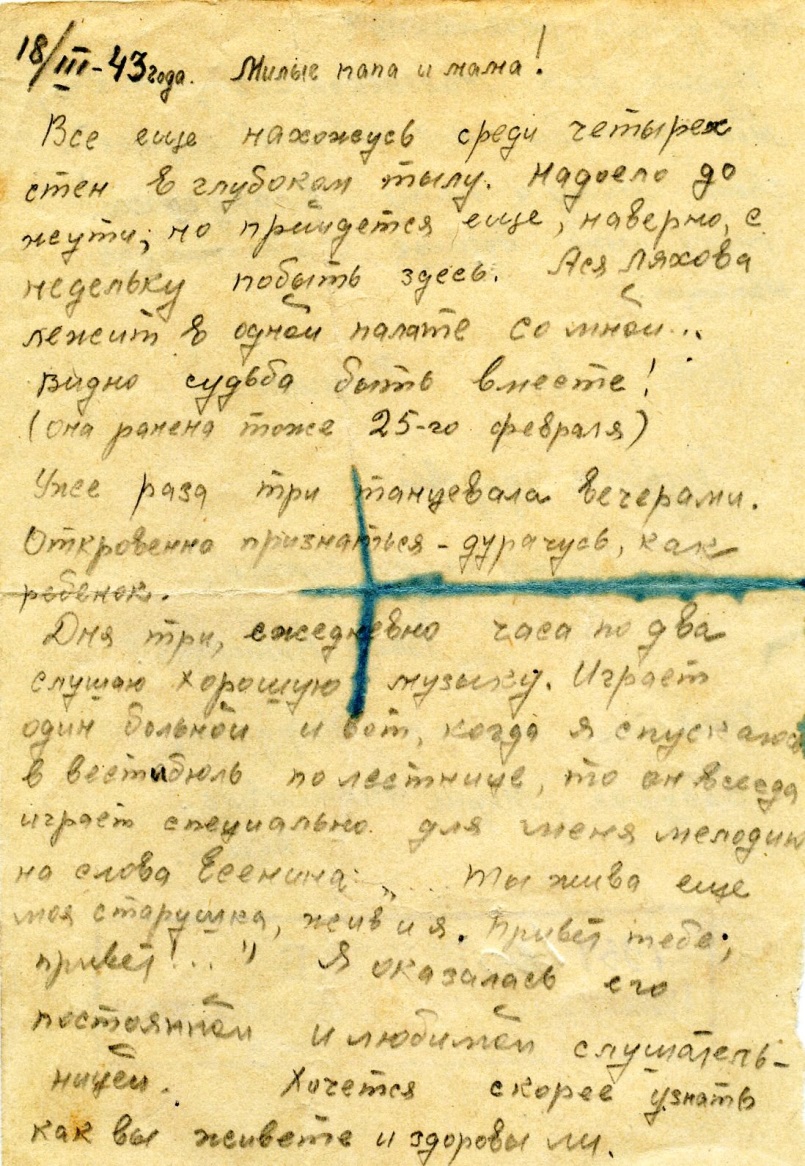 18/III-43 года. Милые папа и мама!
Все еще нахожусь среди четырех
стен в глубоком тылу. Надоело до
жути, но прийдется еще, наверно, с
недельку побыть здесь. Ася Ляхова
лежит в одной палате со мной...
Видно судьба быть вместе!
(Она ранена тоже 25-го февраля)
Уже раза три танцевала вечерами.
Откровенно признаться - дурачусь, как
ребенок.
Дня три, ежедневно часа по два
слушаю хорошую музыку. Играет
один больной и вот, когда я спускаюсь
в вестибюль по лестнице, то он всегда
играет специально для меня мелодию
на слова Есенина: „... Ты жива еще
моя старушка, жив и я. Привет тебе,
привет!..." Я оказалась его
постоянной и любимой слушатель-
ницей. Хочется скорее узнать
как вы живете и здоровы ли.